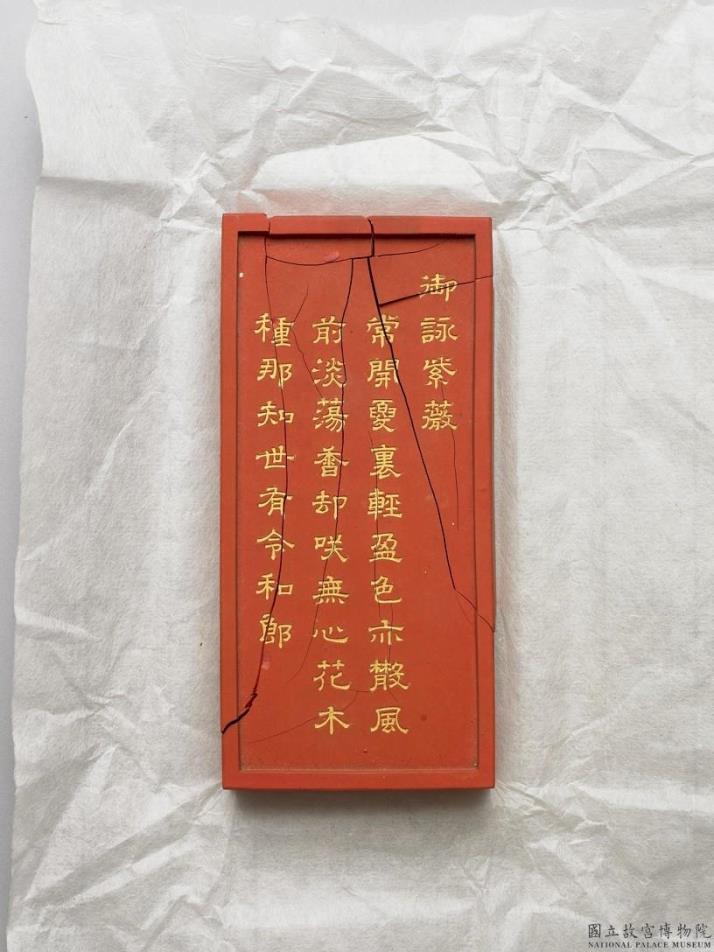 御詠紫薇
常開夏裏輕盈色亦散風
前淡蕩香却咲無心花木
種那知世有令和郎
國立故宮博物院
NATIONAL PALACE MUSEUM